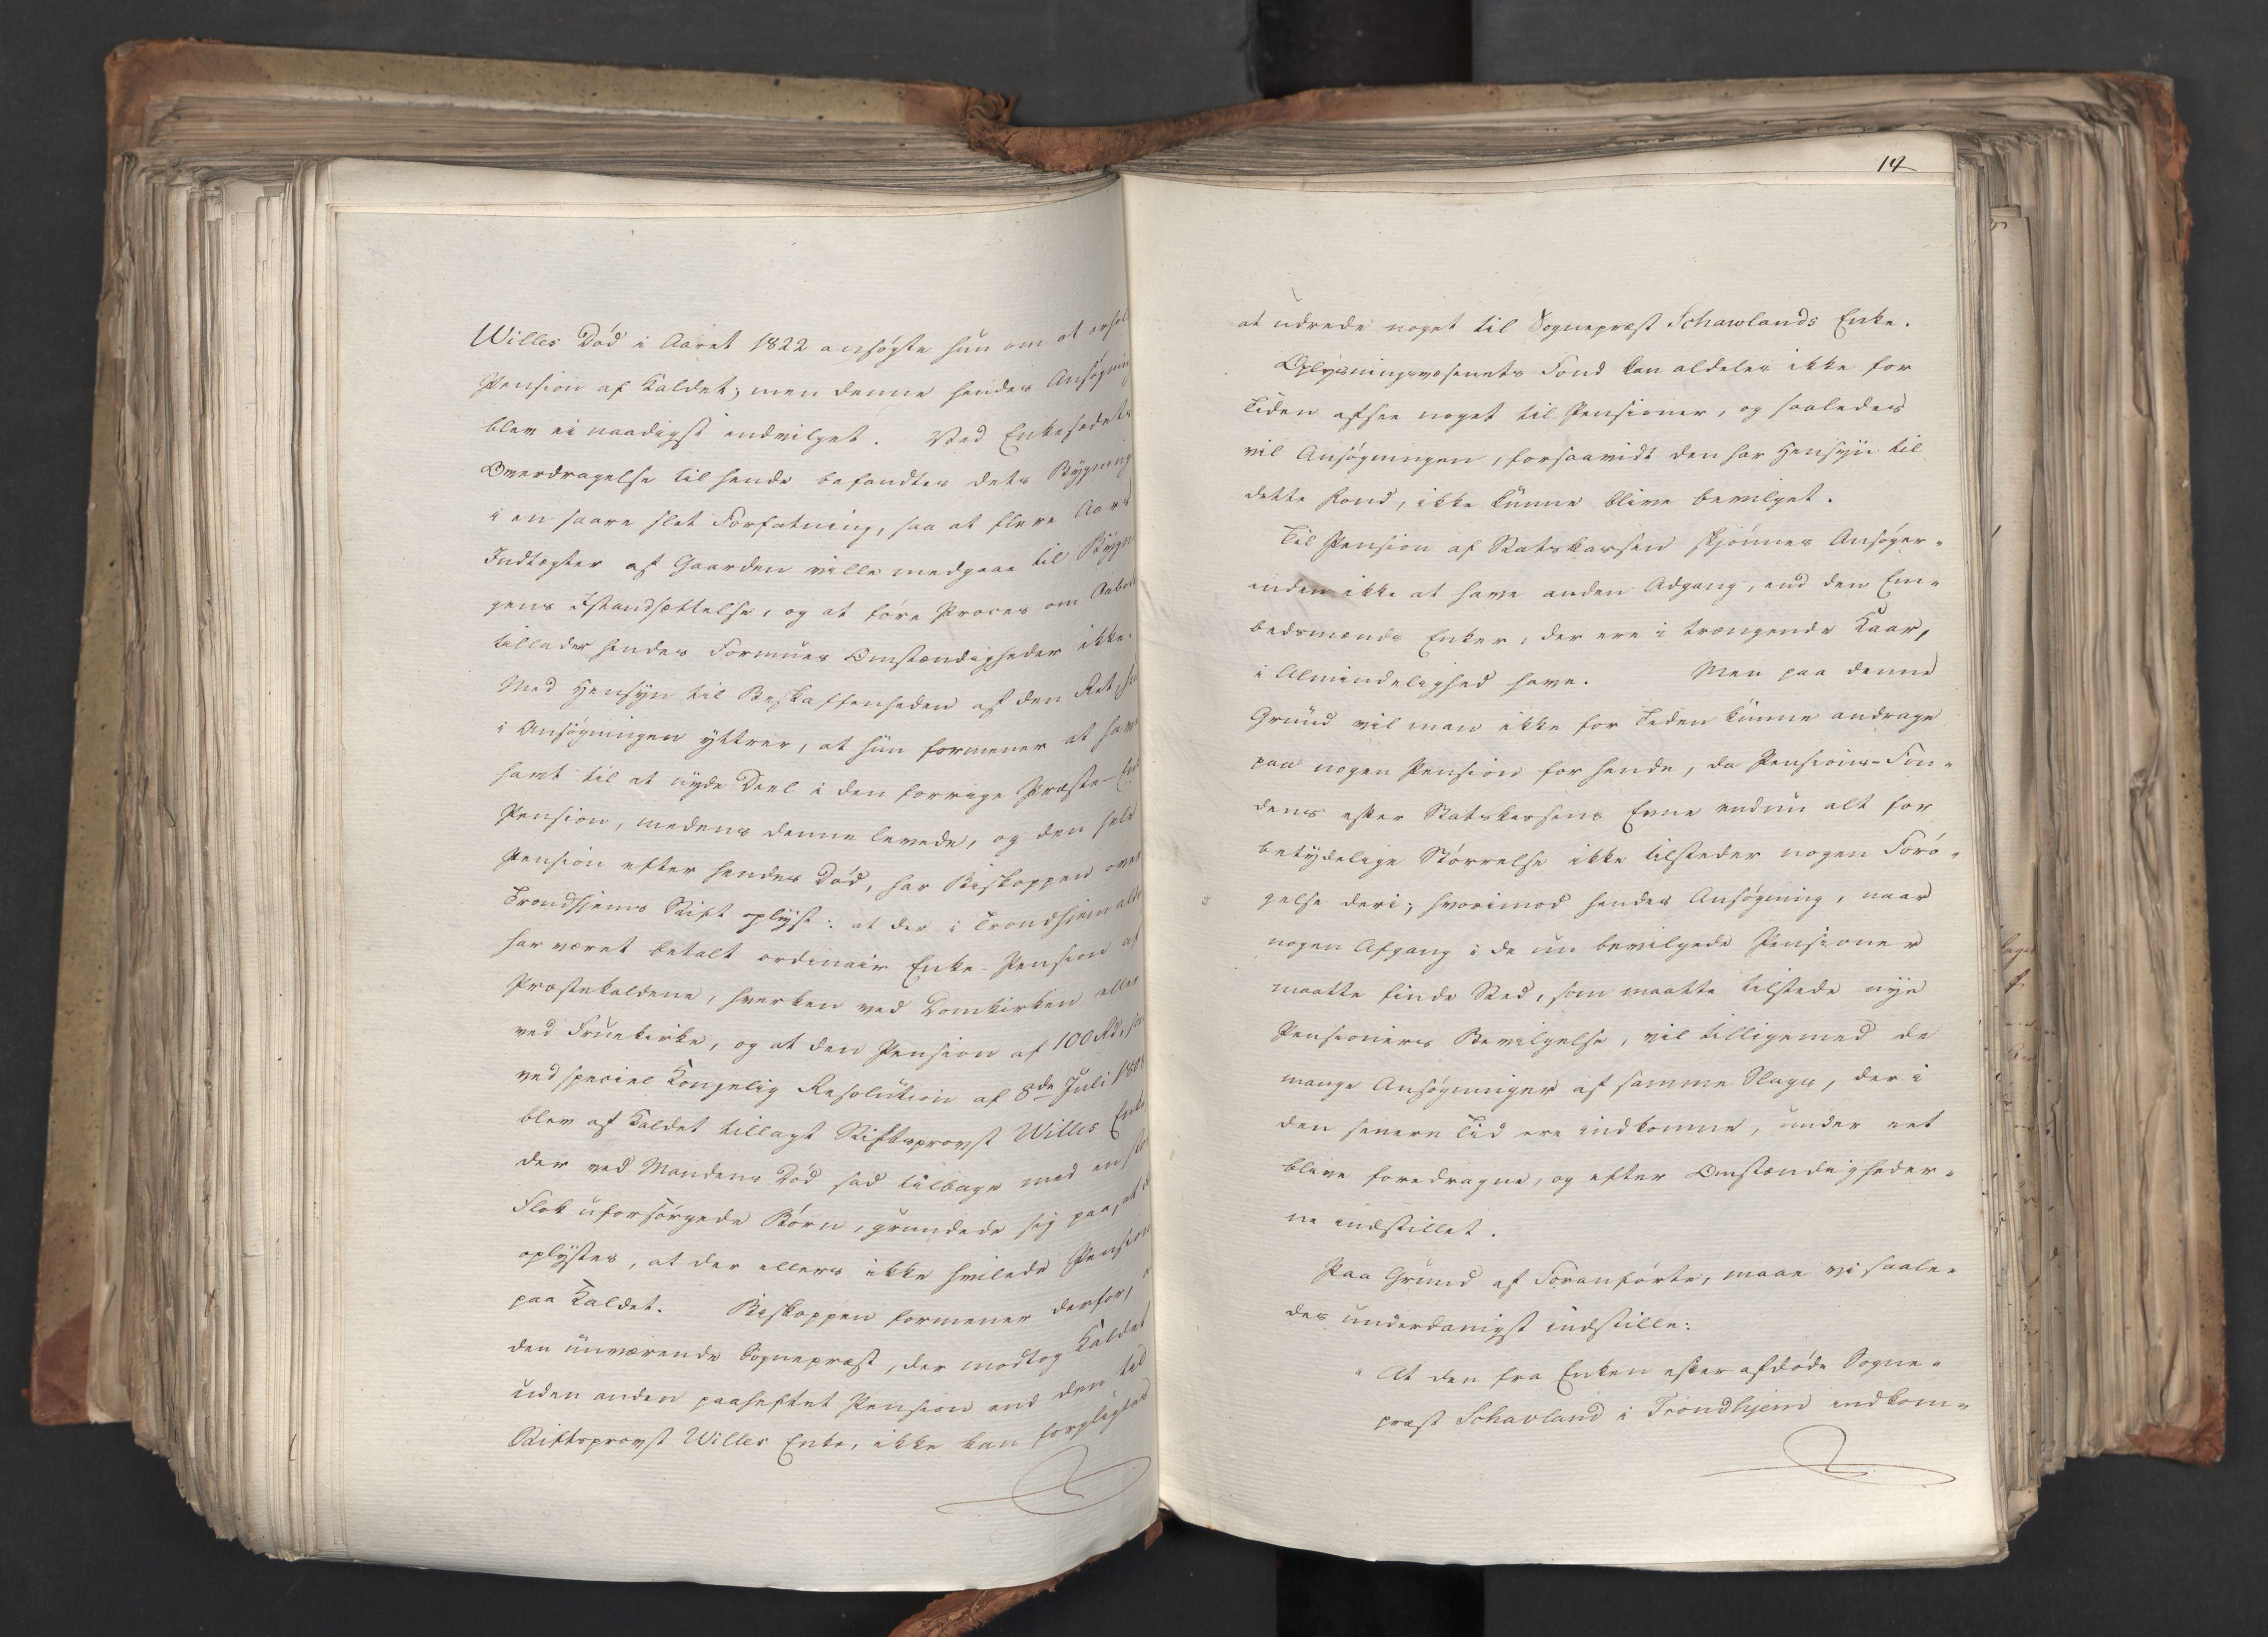 Willes Död i Aaret 1822 ansögte hun om at erhol
Pension af Kaldet; men denne hendes Ansögning
blev ei naadigst indvilget. Ved Enkesædets
Overdragelse til hende befandtes dets Bygning
i en saare slet Forfatning, saa at flere Aars
Indtægter af Gaarden ville medgaae til Bygn
gens Istandsættelse, og at före Proces om Aabod
tillader hendes Formues Omstændigheder ikke.
Med Hensyn til Beskaffenheden af den Ret, hun
i Ansögningen yttrer, at hun formener at have
havt til at nyde Deel i den forrige Præste-Enk
Pension, medens denne levede, og den hele
Pension efter hendes Död, har Biskoppen over
Trondhjems Stift oplyst: at der i Trondhjem aldr
har været betalt ordinair Enke-Pension af
Præstekaldene, hverken ved Domkirken eller
ved Fruekirke, og at den Pension af 100 Rd, so
ved speciel Kongelig Resolution af 8de Juli 180
blev af Kaldet tillagt Stiftsprovst Willes Enke
der ved Mandens Död sad tilbage med en stor
Flok uforsörgede Börn, grundede sig paa, at d
oplystes, at der ellers ikke hvilede Pension
paa Kaldet. Biskoppen formener derfor, a
den nuværende Sognepræst, der modtog Kaldet
uden anden paaheftet Pension end den til
Stiftsprovst Willes Enke, ikke kan forpligtes
14
at udrede noget til Sognepræst Schawlands Enke.
Oplysningsvæsenets Fond kan aldeles ikke for
Tiden afsee noget til Pensioner, og saaledes
vil Ansögningen, forsaavidt den har Hensyn til
dette Fond, ikke kunne blive bevilget.
Til Pension af Statskassen skjönnes Ansöger-
inden ikke at have anden Adgang, end den Em-
bedsmænds Enker, der ere i trængende Kaar,
i Almindelighed have. Men paa denne
Grund vil man ikke for Tiden kunne andrage
paa nogen Pension for hende, da Pensions-Fon-
dens efter Statskassens Evne endnu alt for
betydelige Störrelse ikke tilsteder nogen Forö-
gelse deri; hvorimod hendes Ansögning, naar
nogen Afgang i de nu bevilgede Pensioner
maatte finde Sted, som maatte tilstede nye
Pensioners Bevilgelse, vil tilligemed de
mange Ansögninger af samme Slags, der i
den senere Tid ere indkomne, under eet
blive foredragne, og efter Omstændigheder-
ne indstillet.
Paa Grund af Foranförte, maae vi saale-
des underdanigst indstille:
"At den fra Enken efter afdöde Sogne-
præst Schavland i Trondhjem indkom-